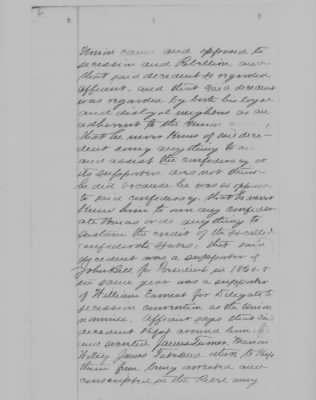 6
Union cause and opposed to
secession and Rebellion, and
that said decedent so regarded
affiant, and that said decedent
was regarded by both his loyal
and disloyal neighbors as an
adherent to the Union
that he never knew of said dece-
dent doing anything to aid
and assist the confederacy or
its supporters, does not think
he did because he was so opposed
to said confederacy, that he never
knew him to own any confeder-
ate Bonds or do anything to
sustain the credit of the so called
confederate States, that said
decedent was a supporter of
John Bell for President in 1860. &
in same year was a supporter
of William Earnest for Delegate to
secession convention as the Union
nominee. Affiant says that said
decedent kept around him,
and secreted James Turner, Marion
James to keep
them from being arrested and
conscripted in the Rebel army